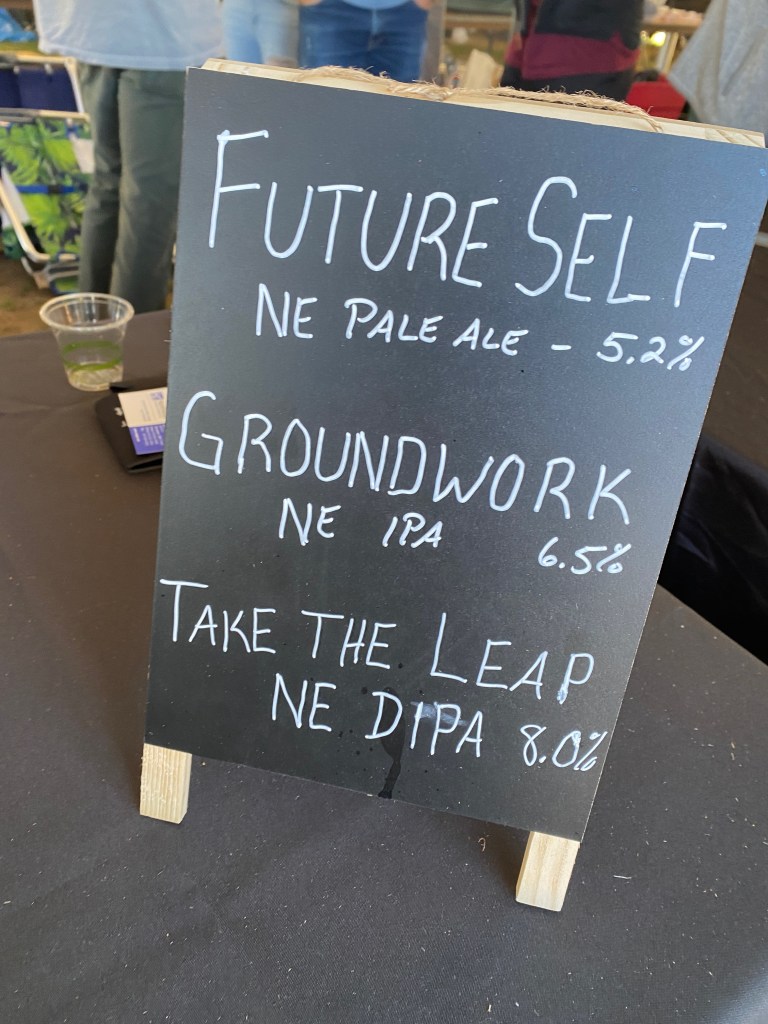 FUTURE SELF
NE PALE ALE - 5.2%
GROUNDWORK
NE IPA 6.5%
TAKE THE LEAP
NE DIPA 8.0%